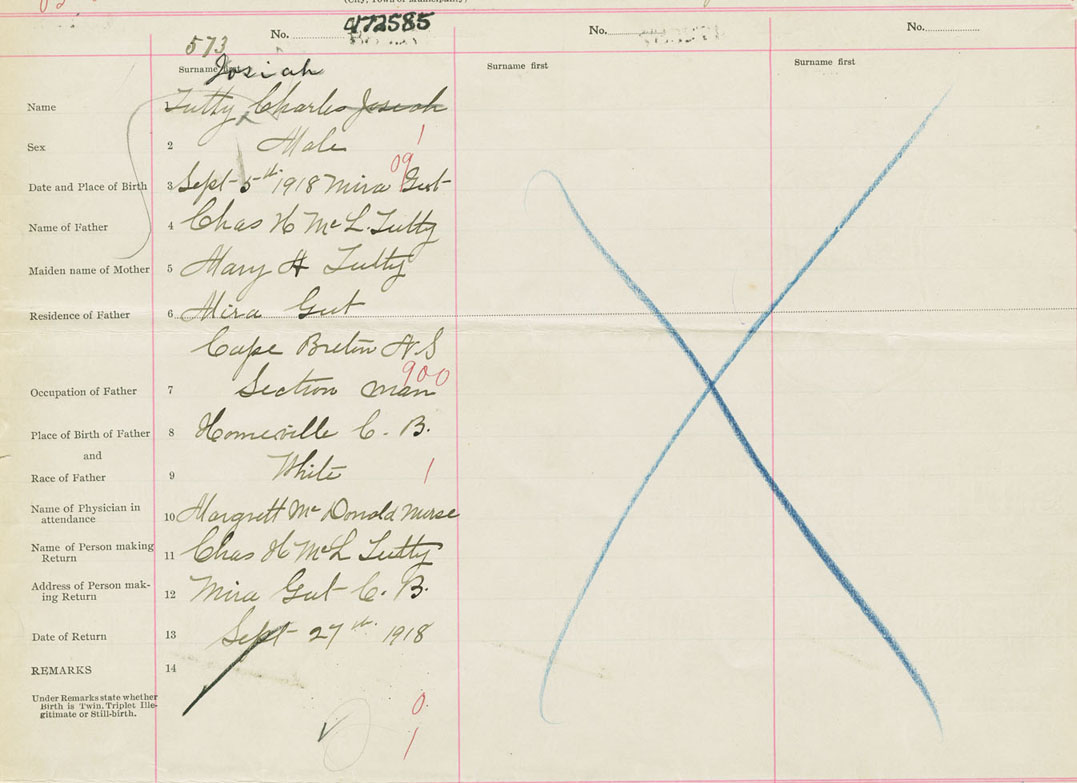 (City, Town or Municipality)
No. 472585 No. No.
573
Surname first Surname first Surname first
Josiah
Name 1 Tutty Charles Josiah
Sex 2 Male 1
09
Date and Place of Birth 3 Sept 5th 1918 Mira Gut
Name of Father 4 Chas H McL. Tutty
Maiden name of Mother 5 Mary H Tutty
Residence of Father 6 Mira Gut
Cape Breton N S
900
Occupation of Father 7 Section man
Place of Birth of Father 8 Homeville C. B.
and
Race of Father 9 White 1
Name of Physician in
attendance 10 Margrett Mc Donald Nurse
Name of Person making
Return 11 Chas H McL Tutty
Address of Person mak-
ing Return 12 Mira Gut C. B.
Date of Return 13 Sept 27th 1918
REMARKS 14
Under Remarks state whether
Birth is Twin, Triplet Ille-
gitimate or Still-birth.
0
1